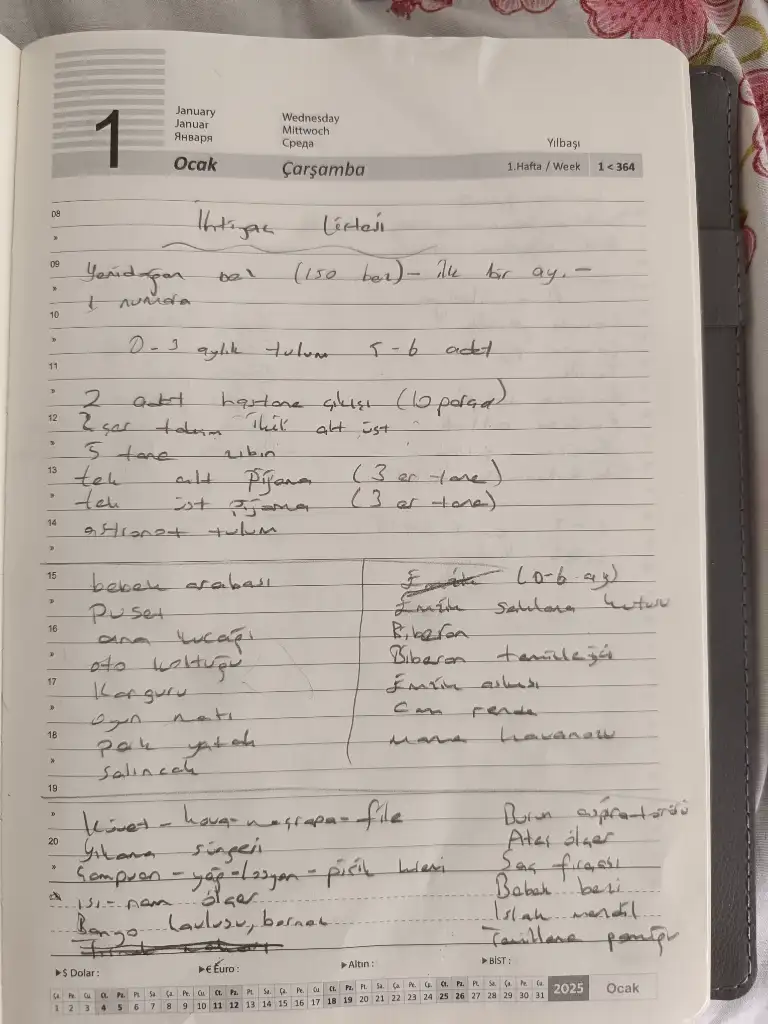 1
January
Januar
Января
Ocak
Wednesday
Mittwoch
Среда
Çarşamba
Yılbaşı
1.Hafta / Week
1 < 364
08
İhtiyaç Listesi
09
Yenidoğan bez (150 bez) - ilk bir ay. -
1 numara
10
0-3 aylık tulum 5-6 adet
11
2 adet hastane çıkışı (10 parça)
12
2 şer takım ikili alt üst
5 tane zıbın
13
tek alt pijama (3 er tane)
tek üst pijama (3 er tane)
14
astronot tulum
15
bebek arabası
Puset
16
ana kucağı
oto koltuğu
17
Kanguru
oyun matı
18
park yatak
salıncak
19
(0-6 ay)
Emzik saklama kutusu
Biberon
Biberon temizleyici
Emzik askısı
Cam rende
Mama havanası
Küvet - kova - maşrapa - file
20
Yıkama süngeri
Şampuan - yağ - losyon - pişik kremi
21
ısı - nem ölçer
Banyo havlusu, bornoz
Burun aspiratörü
Ateş ölçer
Saç fırçası
Bebek bezi
Islak mendil
Temizleme pamuğu
$ Dolar :
€ Euro :
Altın :
BİST :
Ça. Pe. Cu. Ct. Pz. Pt. Sa. Ça. Pe. Cu. Ct. Pz. Pt. Sa. Ça. Pe. Cu. Ct. Pz. Pt. Sa. Ça. Pe. Cu. Ct. Pz. Pt. Sa. Ça. Pe. Cu.
1 2 3 4 5 6 7 8 9 10 11 12 13 14 15 16 17 18 19 20 21 22 23 24 25 26 27 28 29 30 31
2025
Ocak